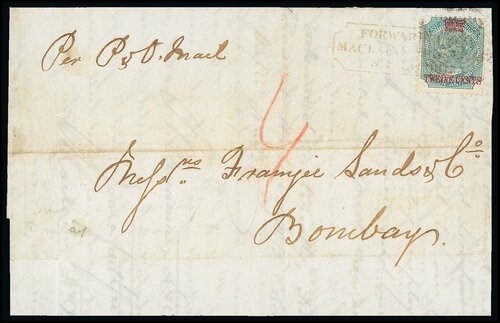 FORWAR
Per P & O. Mail
TWELVE CENTS
4
Messrs Framjee Sands & Co
Bombay.